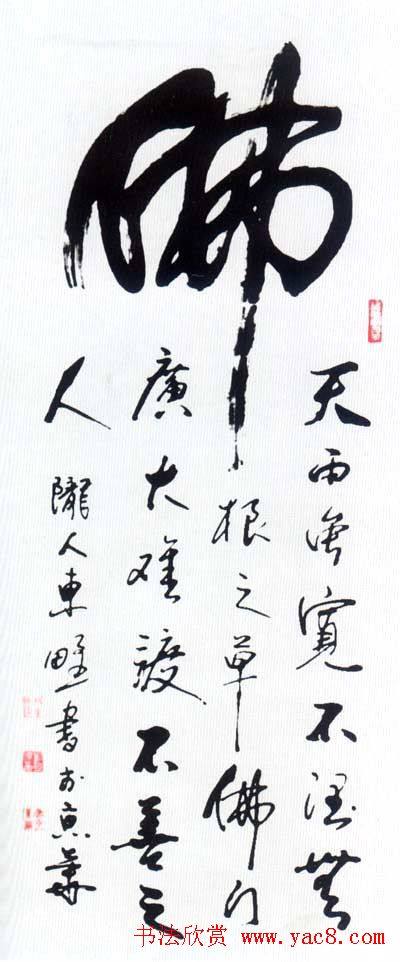 佛
天雨雖寬不润無
根之草佛门
廣大难渡不善之
人
隴人東野書於京華
书法欣赏 www.yac8.com